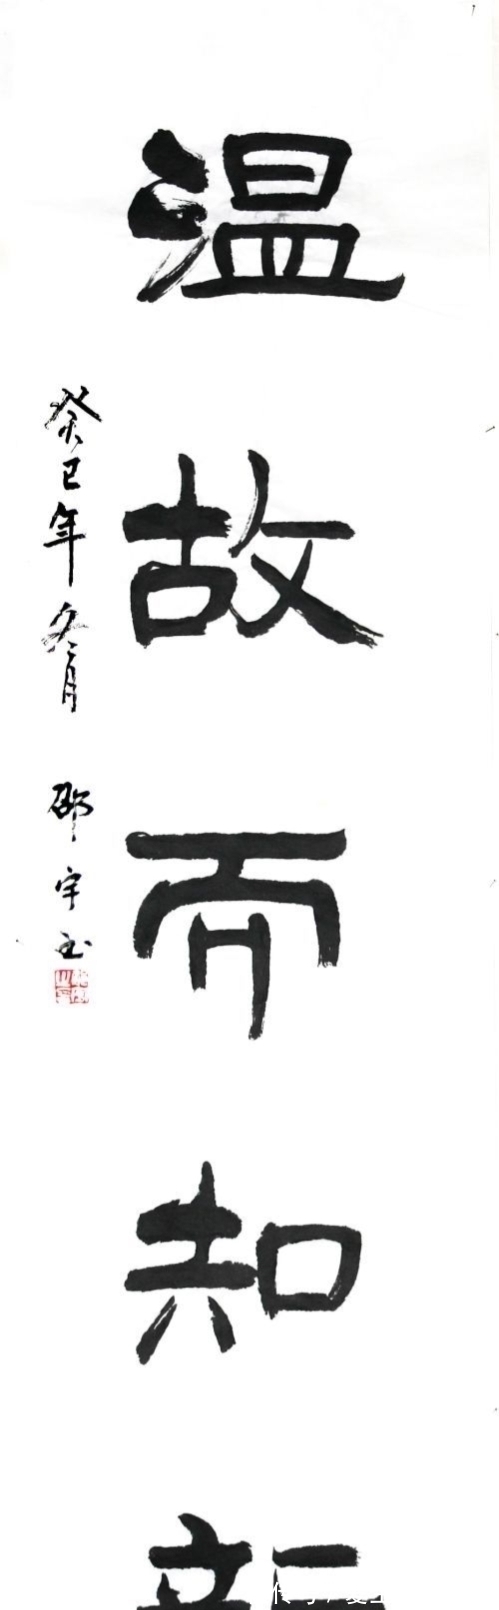 温故而知新
癸巳年冬月 邵宇书